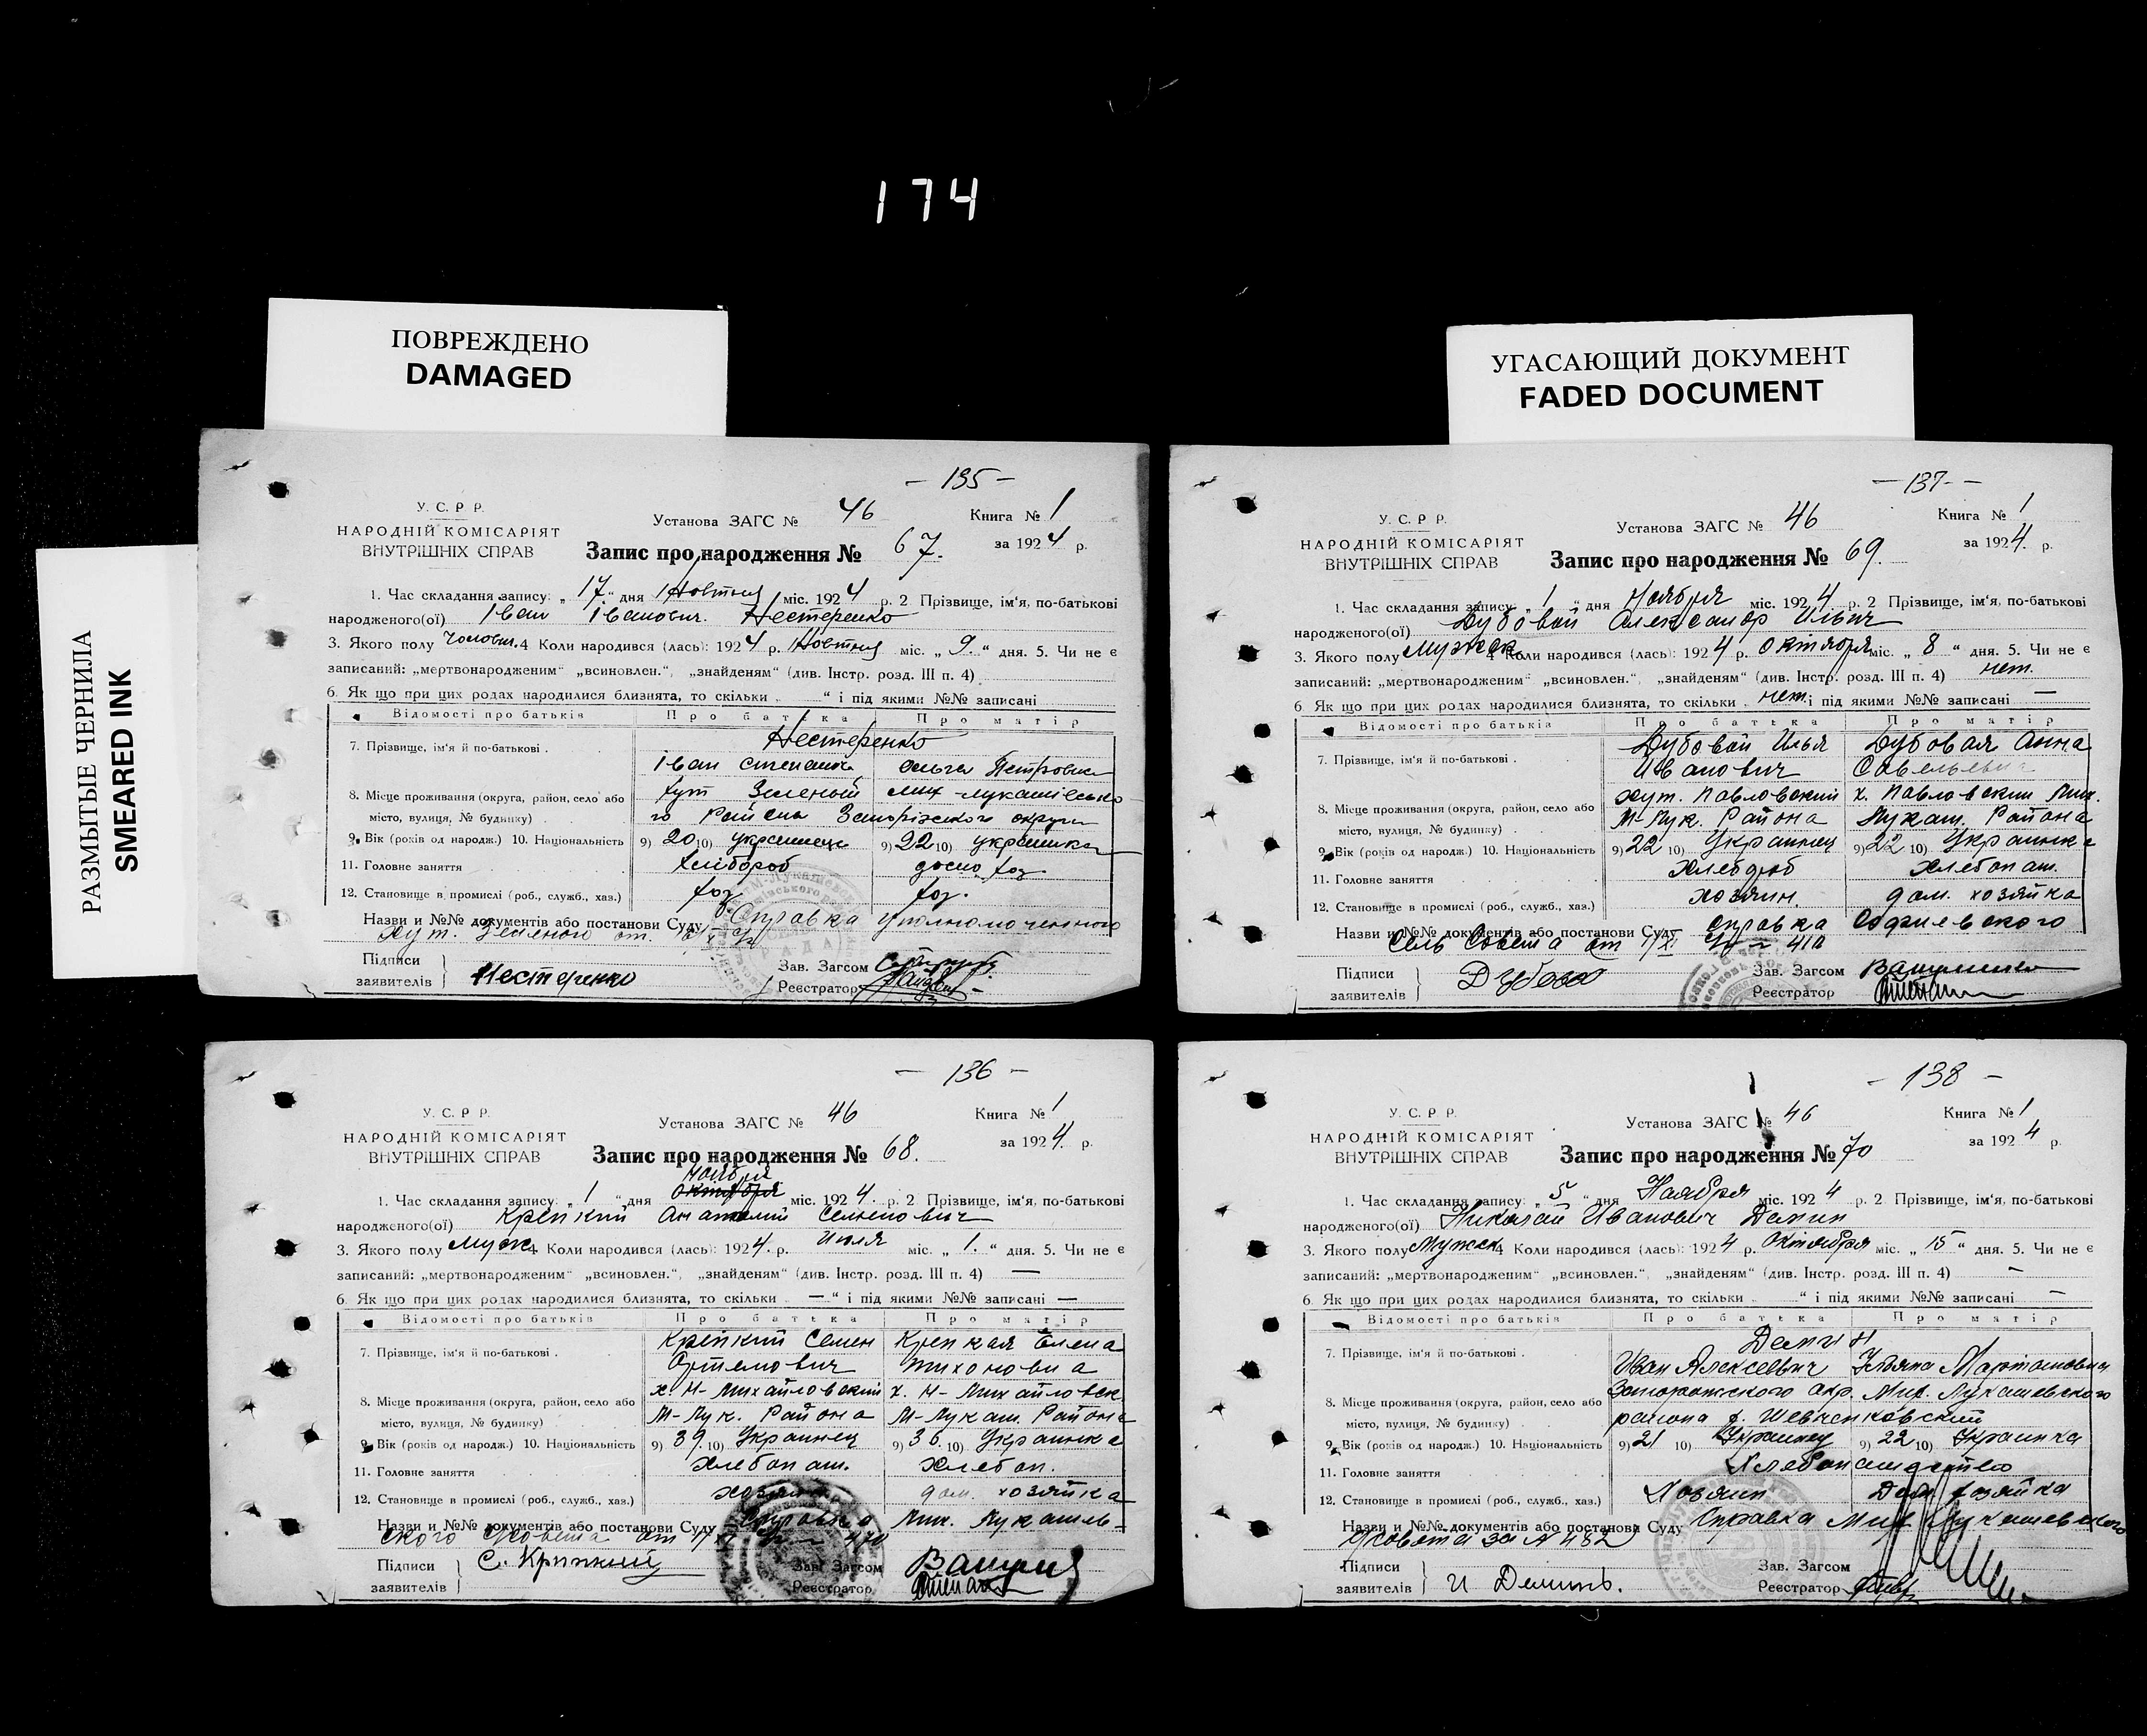 174
ПОВРЕЖДЕНО
DAMAGED
УГАСАЮЩИЙ ДОКУМЕНТ
FADED DOCUMENT
РАЗМЫТЫЕ ЧЕРНИЛА
SMEARED INK
— 135 —
У. С. Р. Р.
НАРОДНІЙ КОМІСАРІЯТ
ВНУТРІШНІХ СПРАВ
Установа ЗАГС № 46
Книга № 1
Запис про народження № 67.
за 1924 р.
1. Час складання запису: „17.“ дня Жовтня міс. 1924 р. 2 Прізвище, ім'я, по-батькові
народженого(ої) Іван Іванович. Нестеренко
3. Якого полу Чоловіч. 4 Коли народився (лась): 1924 р. Жовтня міс. „9.“ дня. 5. Чи не є
записаний: „мертвонародженим“ „всиновлен.“, „знайденям“ (див. Інстр. розд. III п. 4)
6. Як що при цих родах народилися близнята, то скільки “ і під якими №№ записані
Відомості про батьків Про батька Про матір
7. Прізвище, ім'я й по-батькові . Нестеренко
Іван Ольга Петровна
8. Місце проживання (округа, район, село або хут Зеленый Мих-Лукашівсько-
місто, вулиця, № будинку) . го Района Запоріжского округи
9. Вік (років од народж.) 10. Національність 9) 20 10) українець 9) 22 10) українка
11. Головне заняття Хлібороб
12. Становище в промислі (роб., служб., хаз.) хоз хоз.
Назви и №№ документів або постанови Суду Справка Уполномоченного
хут. Зеленого от.
Підписи заявителів Нестеренко
Зав. Загсом
Реєстратор
— 137 —
У. С. Р. Р.
НАРОДНІЙ КОМІСАРІЯТ
ВНУТРІШНІХ СПРАВ
Установа ЗАГС № 46
Книга № 1
Запис про народження № 69.
за 1924. р.
1. Час складання запису „1“ дня Ноября міс. 1924 р. 2 Прізвище, ім'я, по-батькові
народженого(ої) Дубовой Александр Ильич
3. Якого полу Мужск 4 Коли народився (лась): 1924 р. октября міс. „8“ дня. 5. Чи не є
записаний: „мертвонародженим“ „всиновлен.“, „знайденям“ (див. Інстр. розд. III п. 4) нет.
6. Як що при цих родах народилися близнята, то скільки . нет. і під якими №№ записані —
Відомості про батьків Про батька Про матір
7. Прізвище, ім'я й по-батькові . Дубовой Илья Дубовая Анна
Иванович Савельевна
8. Місце проживання (округа, район, село або хут. Павловский х. Павловский Мих.
місто, вулиця, № будинку) . М-Лук. Района Лукаш. Района
9. Вік (років од народж.) 10. Національність 9) 22 10) Украинец 9) 22 10) Украинка
11. Головне заняття Хлебороб хлебопаш.
12. Становище в промислі (роб., служб., хаз.) хозяин. дом. хозяйка
Назви и №№ документів або постанови Суду справка Софиевского
Сель Совета от 1/XI 410
Підписи заявителів Дубовой
Зав. Загсом
Реєстратор
— 136 —
У. С. Р. Р.
НАРОДНІЙ КОМІСАРІЯТ
ВНУТРІШНІХ СПРАВ
Установа ЗАГС № 46
Книга № 1
Запис про народження № 68.
за 1924. р.
ноября
1. Час складання запису: „1“ дня октября міс. 1924. р. 2 Прізвище, ім'я, по-батькові
народженого(ої) Крепкий Анатолий Семенович
3. Якого полу Мужск 4 Коли народився (лась): 1924. р. Июля міс. „1.“ дня. 5. Чи не є
записаний: „мертвонародженим“ „всиновлен.“, „знайденям“ (див. Інстр. розд. III п. 4) —
6. Як що при цих родах народилися близнята, то скільки . —“ і під якими №№ записані —
Відомості про батьків Про батька Про матір
7. Прізвище, ім'я й по-батькові . Крепкий Семен Крепкая Елена
Артемович Тихоновна
8. Місце проживання (округа, район, село або х. Н-Михайловский х. Н-Михайловск
місто, вулиця, № будинку) . М-Лук. Района М-Лукаш. Района
9. Вік (років од народж.) 10. Національність 9) 39. 10) Украинец 9) 36. 10) Украинка
11. Головне заняття хлебопаш. хлебоп.
12. Становище в промислі (роб., служб., хаз.) хозяин. дом. хозяйка
Назви и №№ документів або постанови Суду Справка Мих. Лукашев-
ского с/совета от 1/XI 470
Підписи заявителів С. Крипкий
Зав. Загсом
Реєстратор
— 138 —
У. С. Р. Р.
НАРОДНІЙ КОМІСАРІЯТ
ВНУТРІШНІХ СПРАВ
Установа ЗАГС № 46
Книга № 1
Запис про народження № 70
за 1924 р.
1. Час складання запису: „5“ дня Ноября міс. 1924 р. 2. Прізвище, ім'я, по-батькові
народженого(ої) Николай Иванович Демин
3. Якого полу Мужск 4 Коли народився (лась): 1924 р. Октября міс. „15“ дня. 5. Чи не є
записаний: „мертвонародженим“ „всиновлен.“, „знайденям“ (див. Інстр. розд. III п. 4) —
6. Як що при цих родах народилися близнята, то скільки . “ і під якими №№ записані —
Відомості про батьків Про батька Про матір
7. Прізвище, ім'я й по-батькові . Демин
Иван Алексеевич Ульяна Мартыновна
8. Місце проживання (округа, район, село або Запорожского окр. Мих. Лукашевского
місто, вулиця, № будинку) . района х. Шевченковский
9. Вік (років од народж.) 10. Національність 9) 21 10) Украинец 9) 22 10) Украинка
11. Головне заняття Хлебопашество
12. Становище в промислі (роб., служб., хаз.) Хозяин Дом. хозяйка
Назви и №№ документів або постанови Суду Справка Мих Лукашевского
с/совета за № 482
Підписи заявителів И Деминъ.
Зав. Загсом
Реєстратор